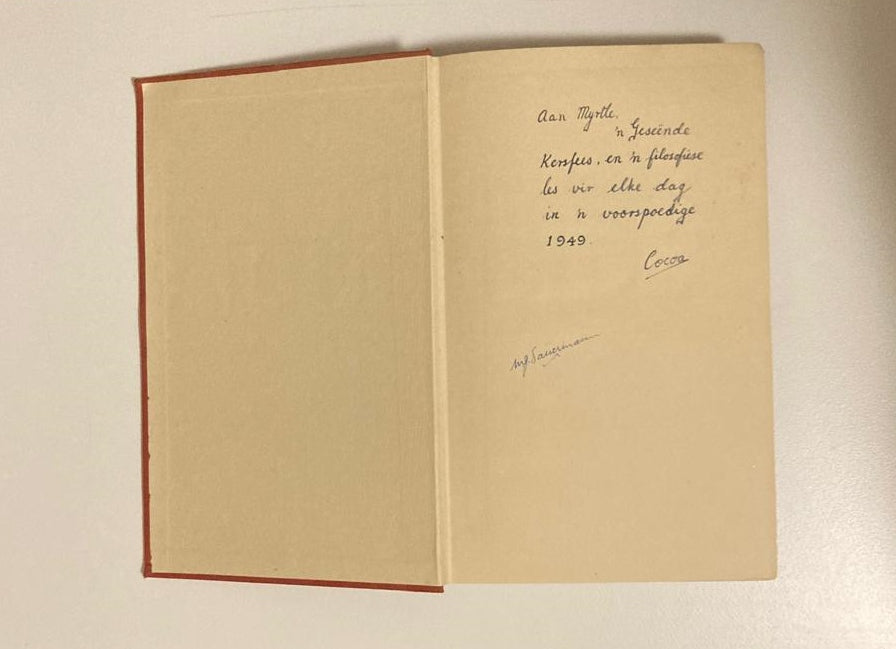 Aan Myrtle,
'n Geseënde
Kersfees, en 'n filosofiese
les vir elke dag
in 'n voorspoedige
1949.
Cocoa
Sauermann